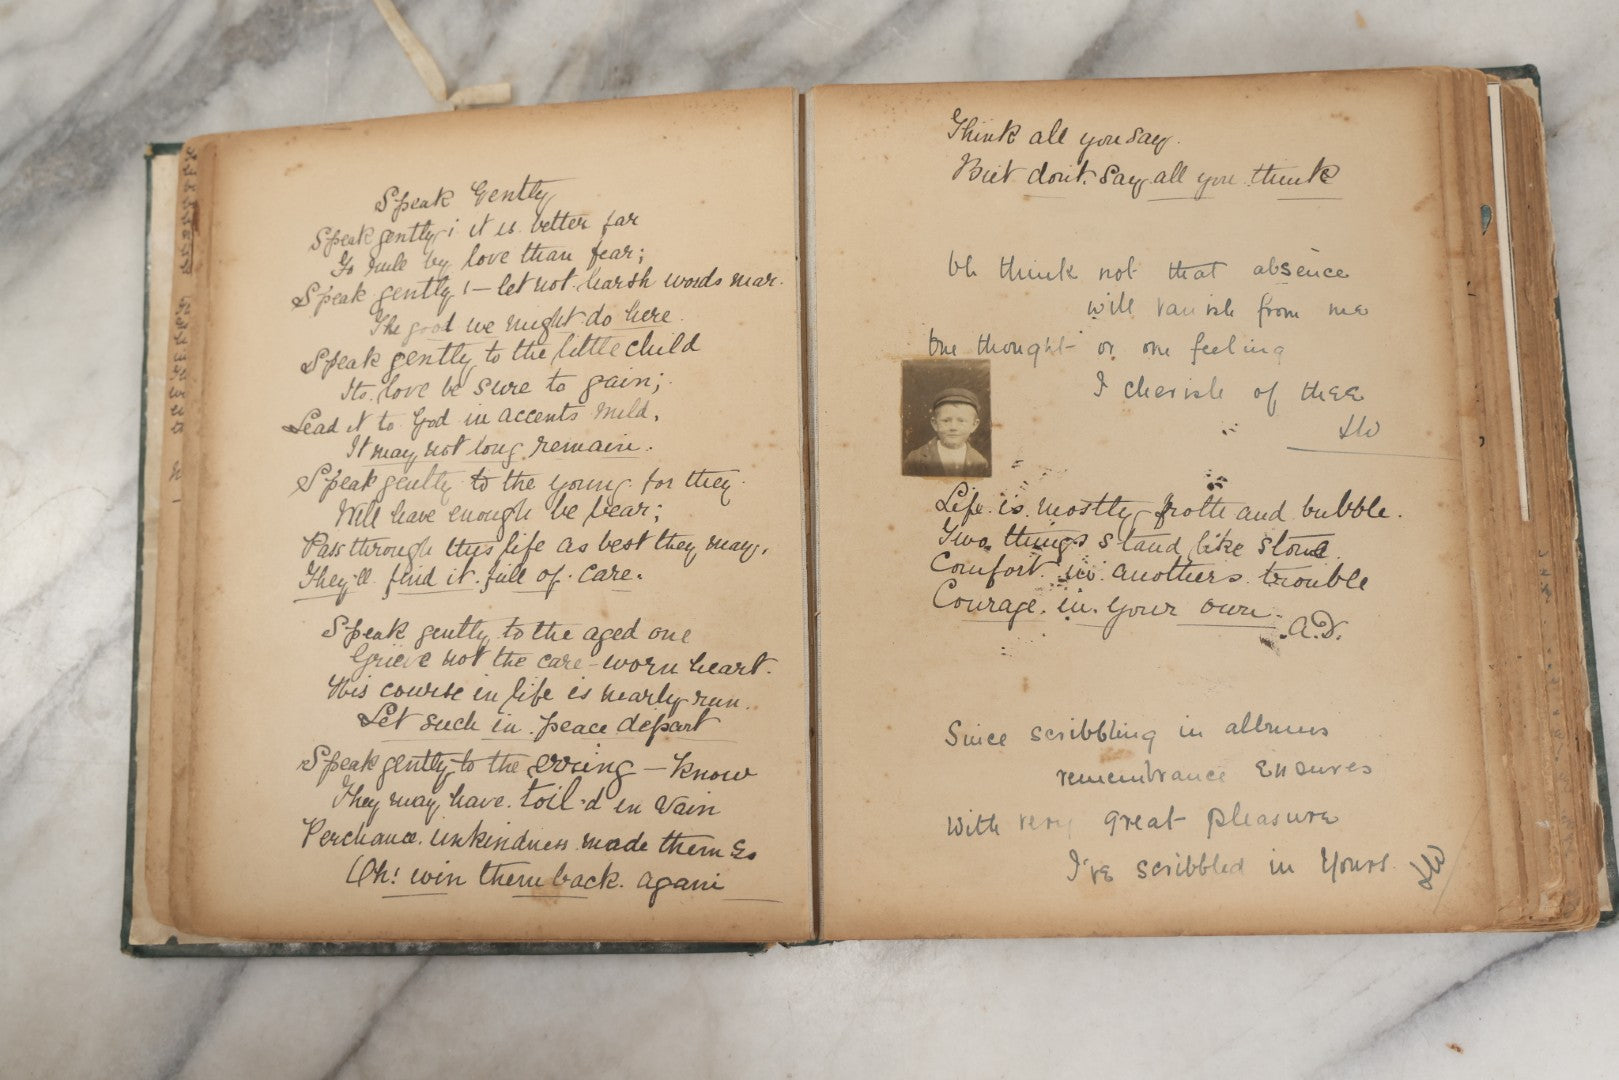 Speak Gently
Speak gently; it is better far
To rule by love than fear;
Speak gently! — let not harsh words mar.
The good we might do here.
Speak gently to the little child
Its love be sure to gain;
Lead it to God in accents mild,
It may not long remain.
Speak gently to the young for they
Will have enough be bear;
Pass through this life as best they may,
They'll find it full of care.
Speak gently to the aged one
Grieve not the care-worn heart.
His course in life is nearly run.
Let such in peace depart
Speak gently to the erring — know
They may have toil'd in vain
Perchance unkindness made them so
Oh! win them back again
Think all you say.
But don't say all you think
Oh think not that absence
will vanish from me
One thought or one feeling
I cherish of thee
LW
Life is mostly froth and bubble.
Two things stand like stone
Comfort in anothers trouble
Courage in your own.
A.D.
Since scribbling in albums
remembrance ensures
With very great pleasure
I've scribbled in Yours.
LW